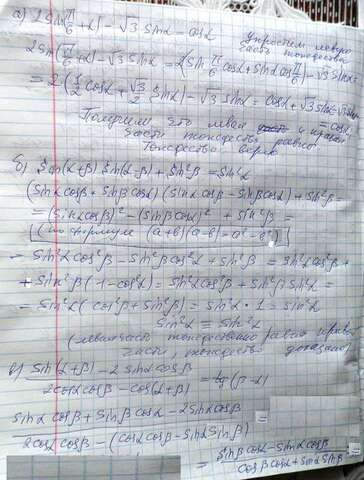 а) 2sin(π/6+α) - √3 sinα = cosα
Упростим левую
часть тождества
2sin(π/6+α) - √3 sinα = 2(sin π/6 cosα + sinα cos π/6) - √3 sinα
= 2(1/2 cosα + √3/2 sinα) - √3 sinα = cosα + √3 sinα - √3 sinα
= cosα
Получим, что левая и правая
части тождества равны
Тождество верно
б) sin(α+β) sin(α-β) + sin²β = sin²α
(sinα cosβ + sinβ cosα)(sinα cosβ - sinβ cosα) + sin²β =
= (sinα cosβ)² - (sinβ cosα)² + sin²β =
[(по формуле (a+b)(a-b) = a² - b²)]
= sin²α cos²β - sin²β cos²α + sin²β = sin²α cos²β +
+ sin²β (1 - cos²α) = sin²α cos²β + sin²β sin²α =
= sin²α (cos²β + sin²β) = sin²α · 1 = sin²α
sin²α = sin²α
(левая часть тождественно равна правой
части, тождество доказано)
в) sin(α+β) - 2 sinα cosβ / 2cosα cosβ - cos(α+β) = tg(β-α)
sinα cosβ + sinβ cosα - 2sinα cosβ
2cosα cosβ - (cosα cosβ - sinα sinβ)
= sinβ cosα - sinα cosβ
cosβ cosα + sinα sinβ